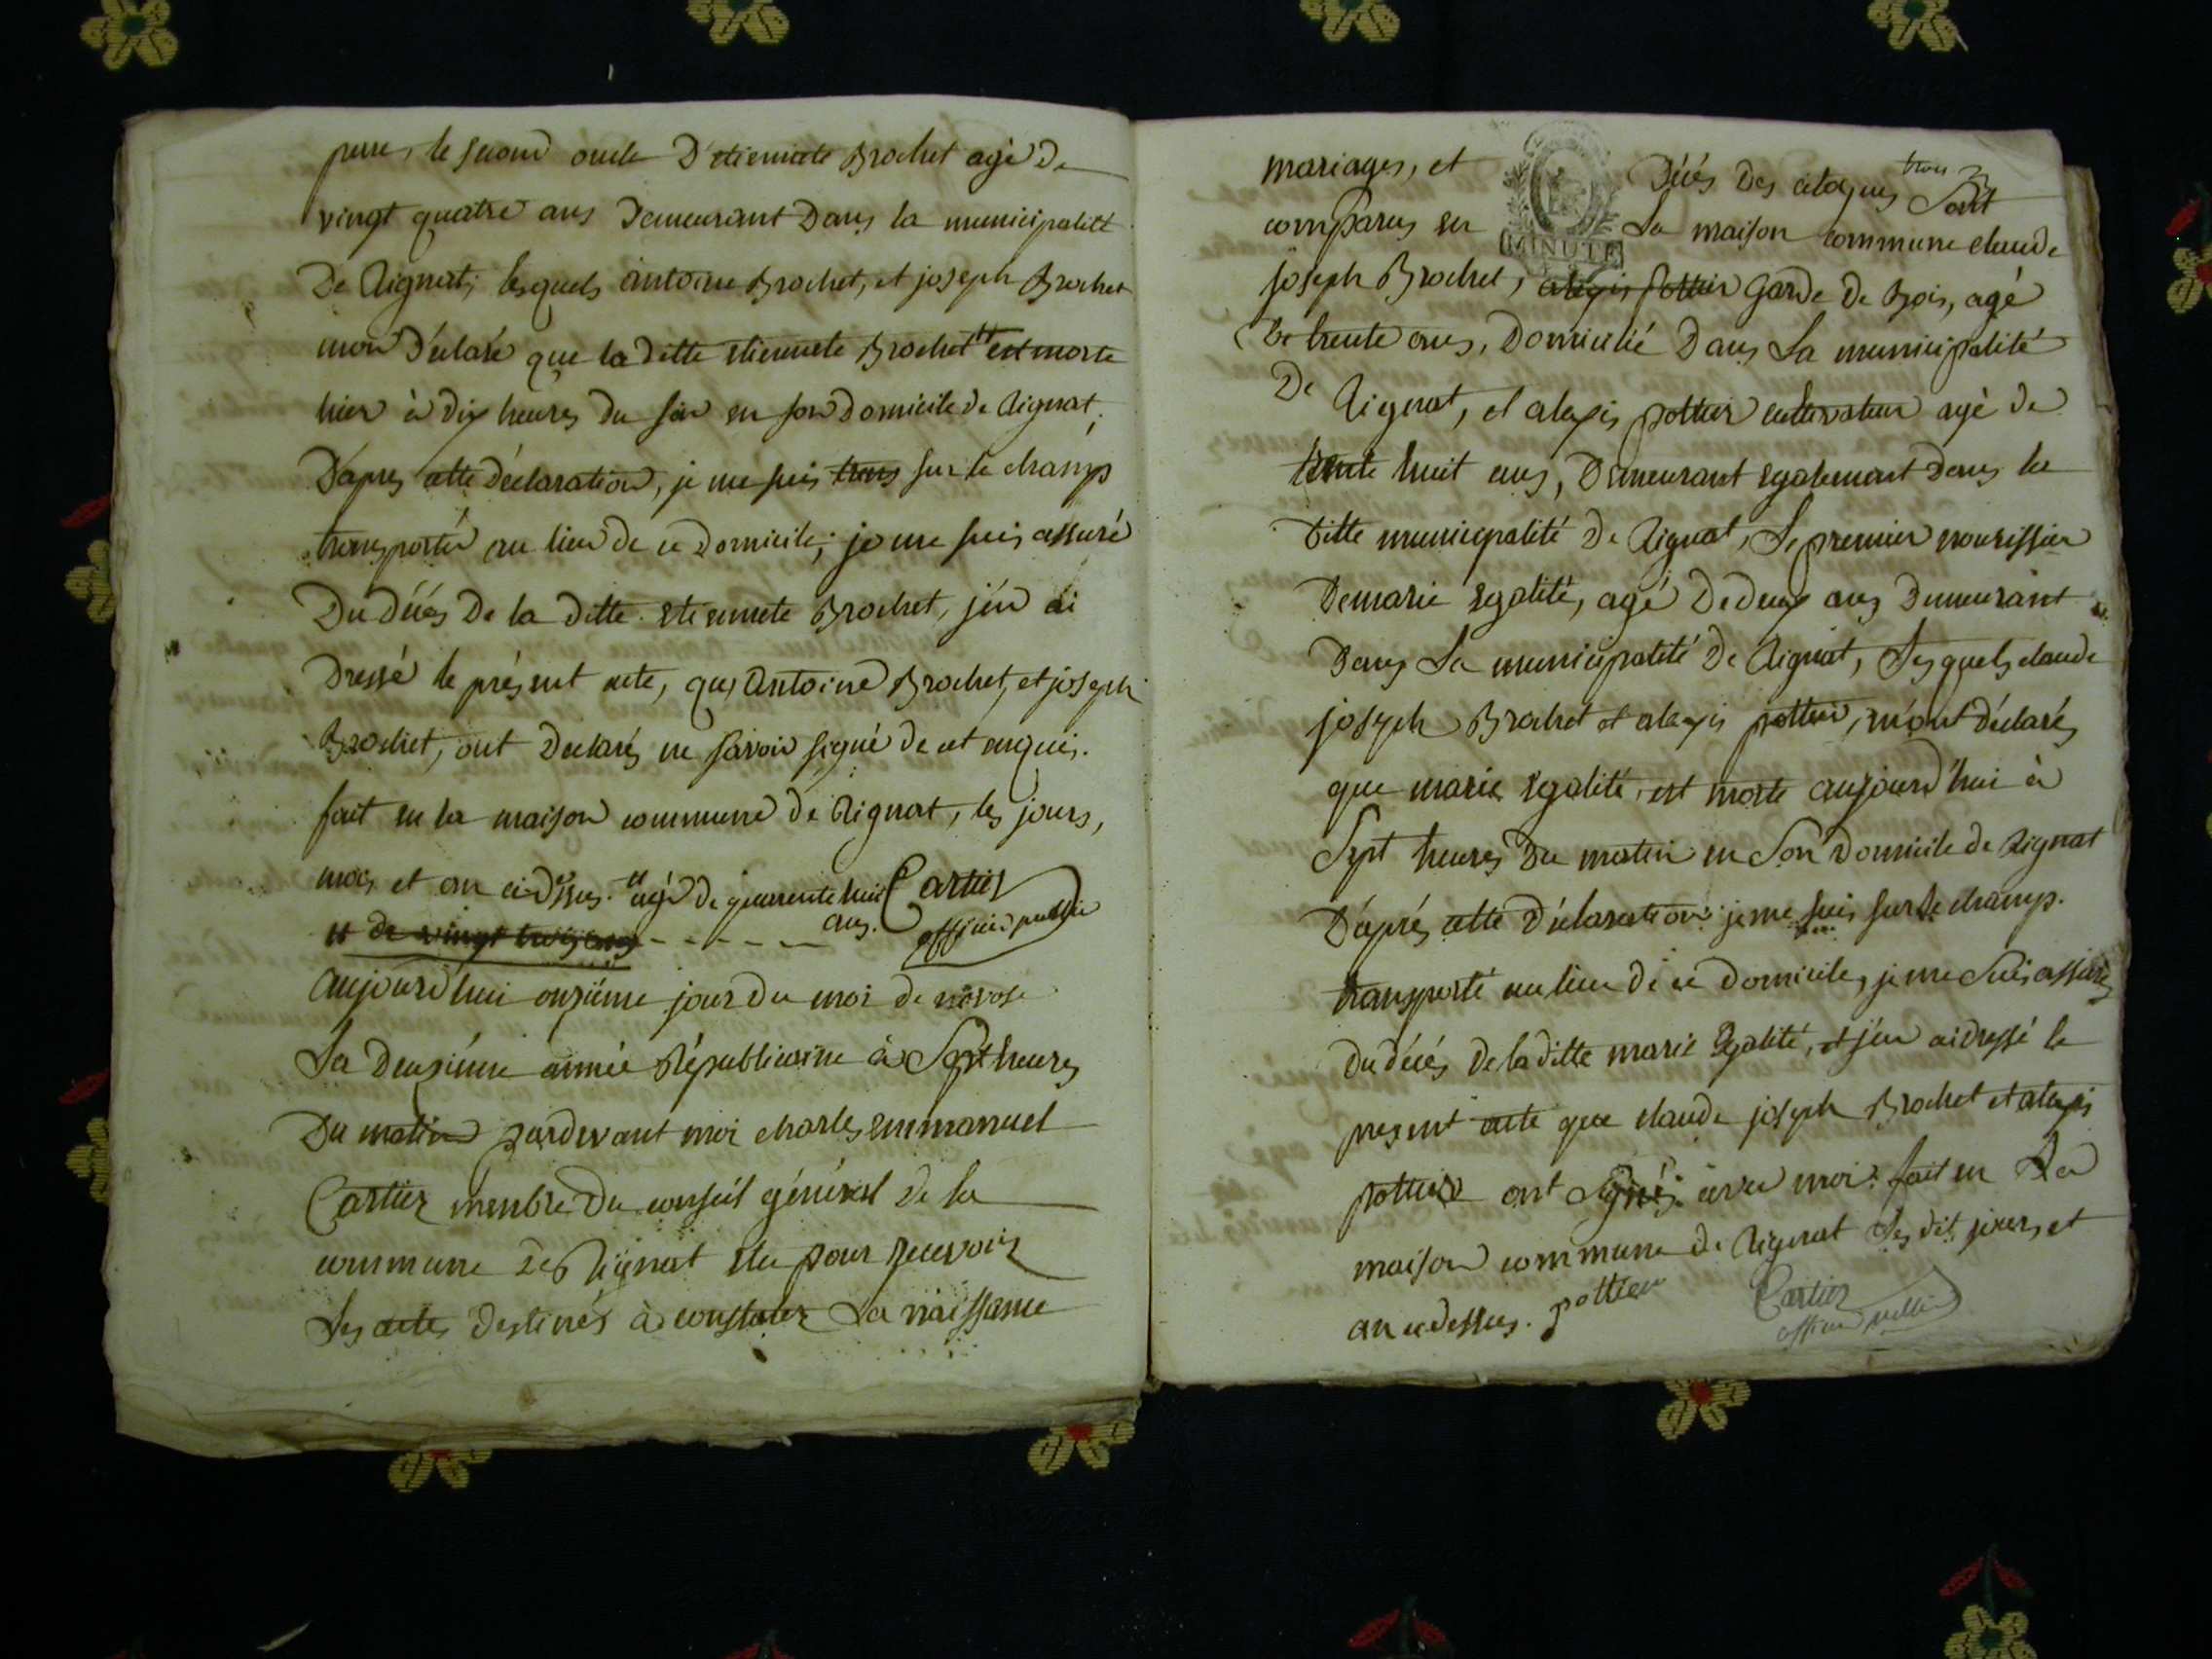 perre, le second oncle D'etiennete Brochet agé De
vingt quatre ans Demeurant Dans la municipalité
De Rignat; lesquels antoine Brochet, et joseph Brochet
mon Déclaré que la ditte etiennete Brochet # est morte
hier à dix heures du soir en son Domicile de Rignat,
D'apres cette déclaration, je me suis trans sur le champ
transporté au lieu de ce Domicile; je me suis assuré
Du décès De la ditte etiennete Brochet, j'en ai
Dressé le présent acte, que Antoine Brochet, et joseph
Brochet, ont Declarés ne savoir signé de cet enquis.
fait en la maison commune de Rignat, les jours,
mois et an ci-dessus. # agé de quarente huit
ans.
Cartier
officier public
# de vingt trois ans
Aujourd'hui onzième jour du moi de nivose
La Deuxiéme année Républicaine à Sept heures
Du matin pardevant moi charles emmanuel
Cartier membre Du conseil général de la
commune De Rignat elu pour recevoir
Les actes destinés à constater La naissance
mariages, et Décés Des citoyens Sont
trois
comparus en La maison commune claude
MINUTE
joseph Brochet, alexis pottier Garde De Bois, agé
De trente ans, Domicilié Dans La municipalité
De Rignat, et alexis pottier cultivateur agé de
trente huit ans, Demeurant egalement Dans la
ditte municipalité De Rignat, Le premier nourissier
De marie egalité, agé De deux ans Demeurant
Dans La municipalité De Rignat, Lesquels claude
joseph Brochet et alexis pottier, m'ont déclarés
que marie egalité, est morte aujourd'hui à
Sept heures Du matin en Son Domicile de Rignat
D'aprés cette Déclaration je me suis sur le champ.
transporté au lieu de ce Domicile, je me Suis assuré
du décés de la ditte marie Egalité, et j'en ai dressé le
present acte que claude joseph Brochet et alexis
pottier ont Signés avec moi. fait en La
maison commune de Rignat Les dit jours, et
an ci dessus. pottier
Cartier
officier public